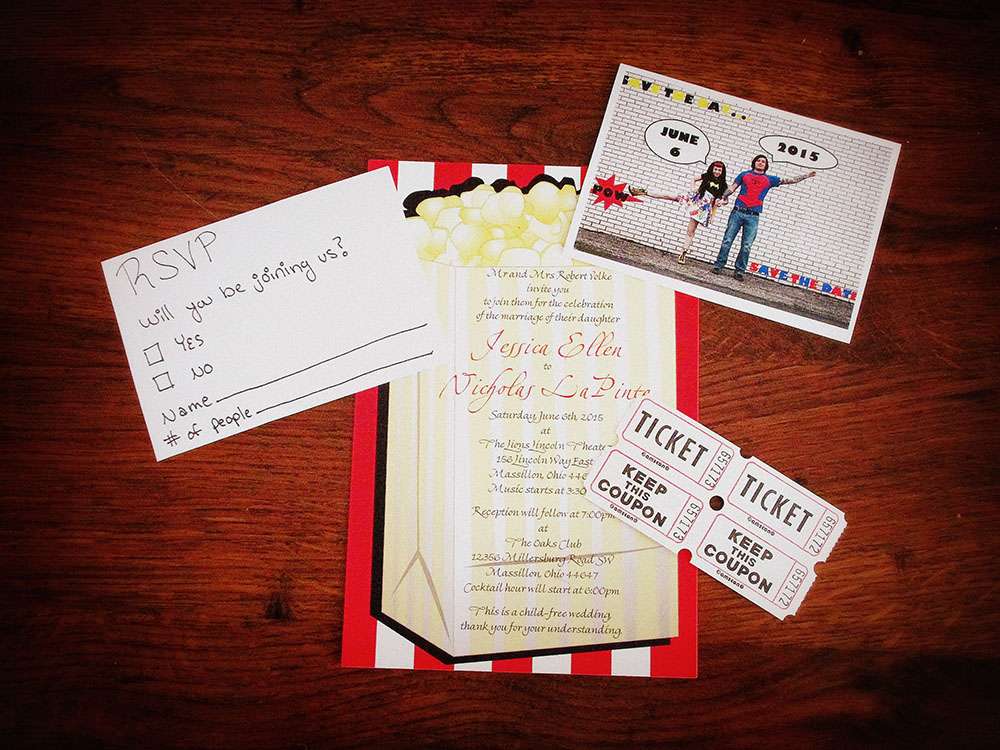 RSVP
Will you be joining us?
YES
NO
Name
# of people
Mr and Mrs Robert Yolke
invite you
to join them for the celebration
of the marriage of their daughter
Jessica Ellen
to
Nicholas LaPinto
Saturday, June 6th, 2015
at
The Lions Lincoln Theater
156 Lincoln Way East
Massillon, Ohio
Music starts at 3:30
Reception will follow at 7:00pm
at
The Oaks Club
12356 Millersburg Road SW
Massillon, Ohio 44647
Cocktail hour will start at 6:00pm
This is a child-free wedding,
thank you for your understanding.
JUNE
6
2015
POW
SAVE THE DATE
TICKET
657173
Gamstond
KEEP
THIS
COUPON
657173
Gamstond
TICKET
657172
Gamstond
KEEP
THIS
COUPON
657172
Gamstond